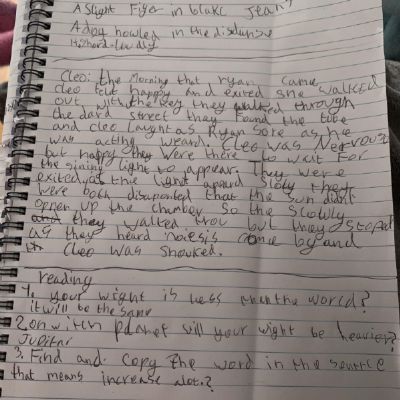 A slight Figer in blakc Jeans
A dog howled in the distunse
Cleo: the Morning that ryan came
cleo felt happy and exited she walked
out with the key they walked through
the dard street they found the tube
and cleo laught as Ryan as he
was acthy weard. Cleo was Nervous
but happy they were there to wait For
the light to appear. They were
exited as the light apeard Sloly they
were both disaponted that the sun didnt
oppen up the chamber so the slowly
and they walked trou but they stoped
as they heard noiesis come beyand
Cleo was shouked.
reading
1. your wight is less than the world?
it will be the same
2. on witch planet will your wight be heavier?
Jupitar
3. Find and copy the word in the
that means increase alot.?